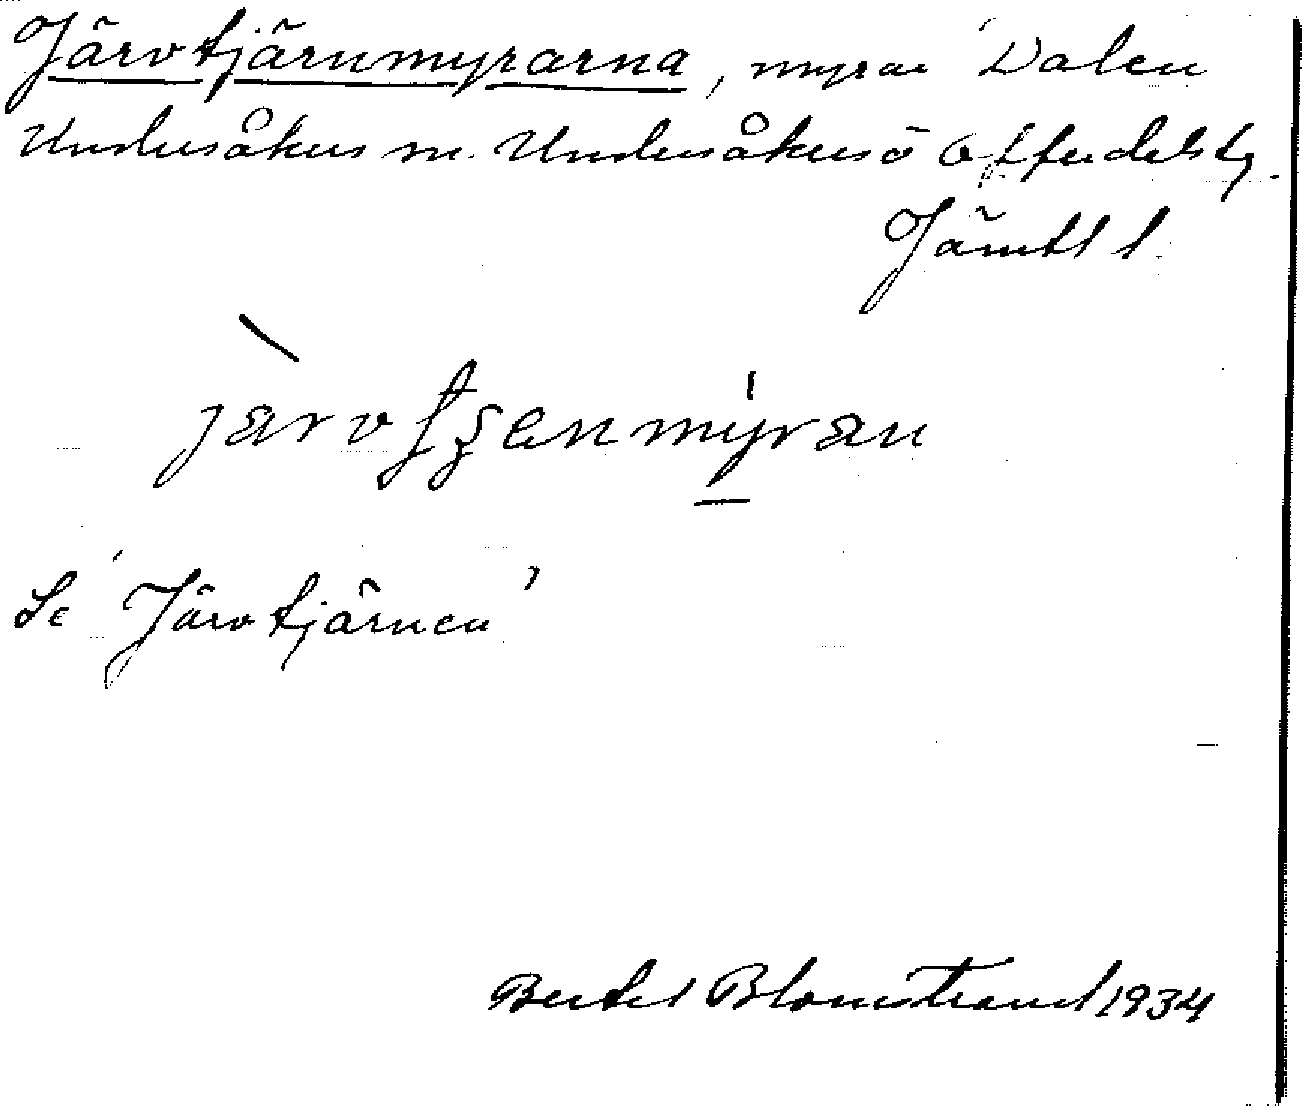 Järvtjärnmyrarna, myrar Dalen
Undersåkers sn. Undersåkers o Offerdals tg.
Jämtl l.
Se 'Järvtjärnen'
Bertel Blomstrand 1934